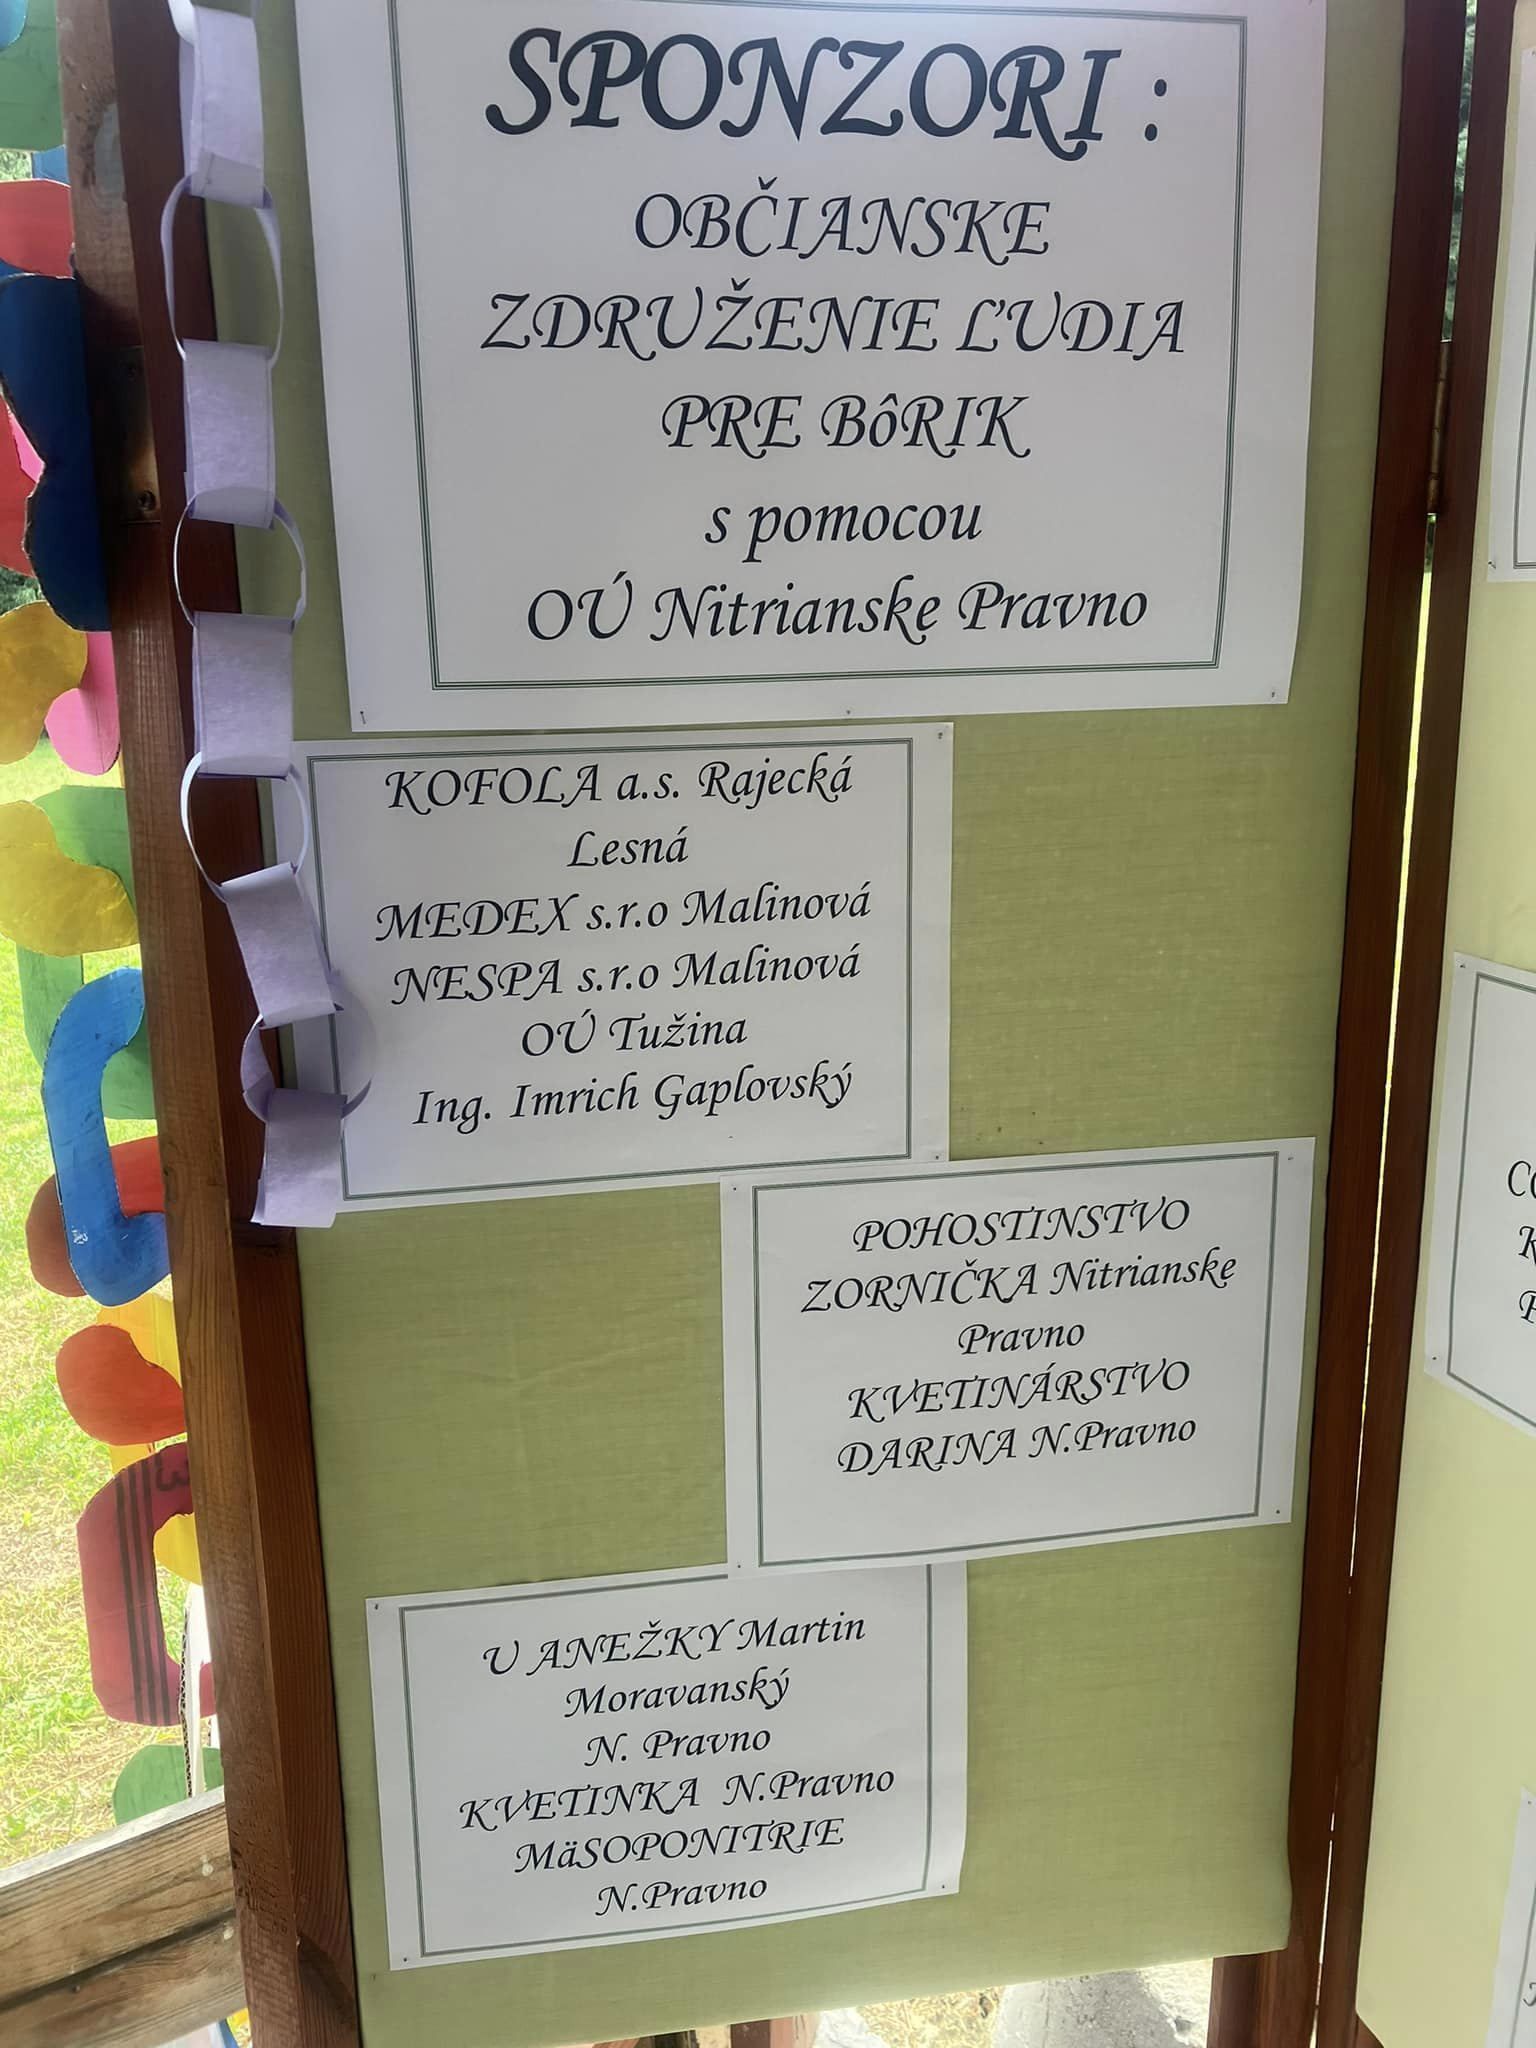 SPONZORI :
OBČIANSKE
ZDRUŽENIE ĽUDIA
PRE BôRIK
s pomocou
OÚ Nitrianske Pravno
KOFOLA a.s. Rajecká
Lesná
MEDEX s.r.o Malinová
NESPA s.r.o Malinová
OÚ Tužina
Ing. Imrich Gaplovský
POHOSTINSTVO
ZORNIČKA Nitrianske
Pravno
KVETINÁRSTVO
DARINA N.Pravno
U ANEŽKY Martin
Moravanský
N. Pravno
KVETINKA N.Pravno
MäSOPONITRIE
N.Pravno